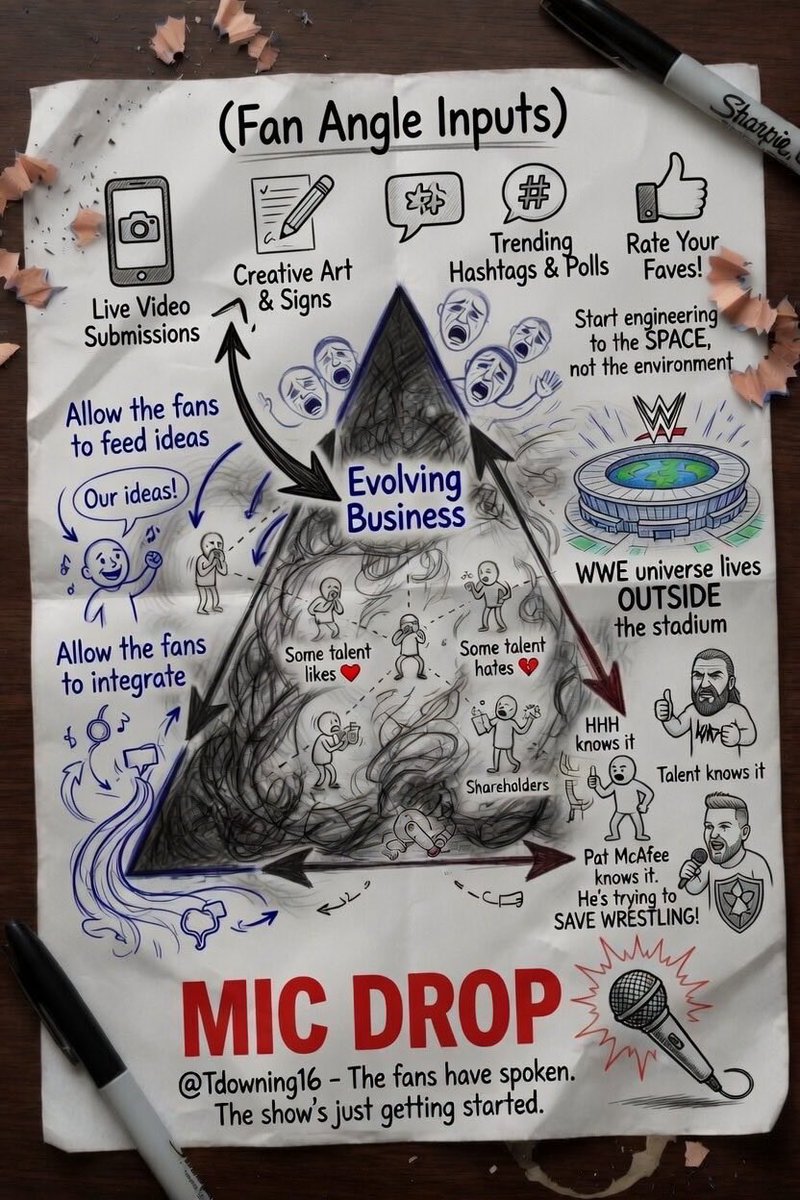 (Fan Angle Inputs)
Sharpie
Live Video
Submissions
Creative Art
& Signs
#
Trending
Hashtags & Polls
Rate Your
Faves!
Start engineering
to the SPACE,
not the environment
Allow the fans
to feed ideas
Our ideas!
Evolving
Business
W
WWE universe lives
OUTSIDE
the stadium
Allow the fans
to integrate
Some talent
likes ❤️
Some talent
hates 💔
Shareholders
HHH
knows it
Talent knows it
Pat McAfee
knows it.
He's trying to
SAVE WRESTLING!
MIC DROP
@Tdowning16 – The fans have spoken.
The show's just getting started.